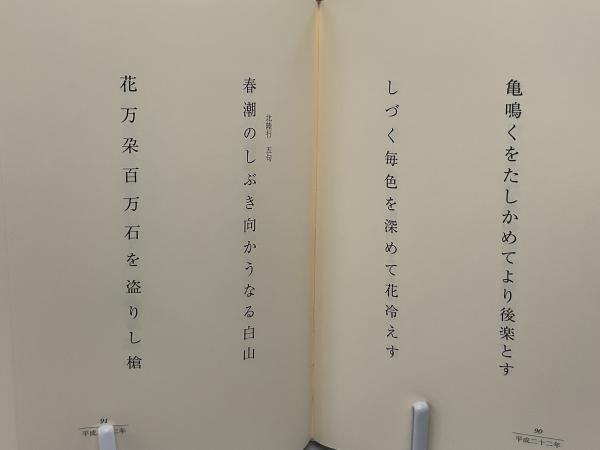 亀鳴くをたしかめてより後楽とす
しづく毎色を深めて花冷えす
90
平成二十二年
北陸行 五句
春潮のしぶき向かうなる白山
花万朶百万石を盗りし槍
91
平成 二年